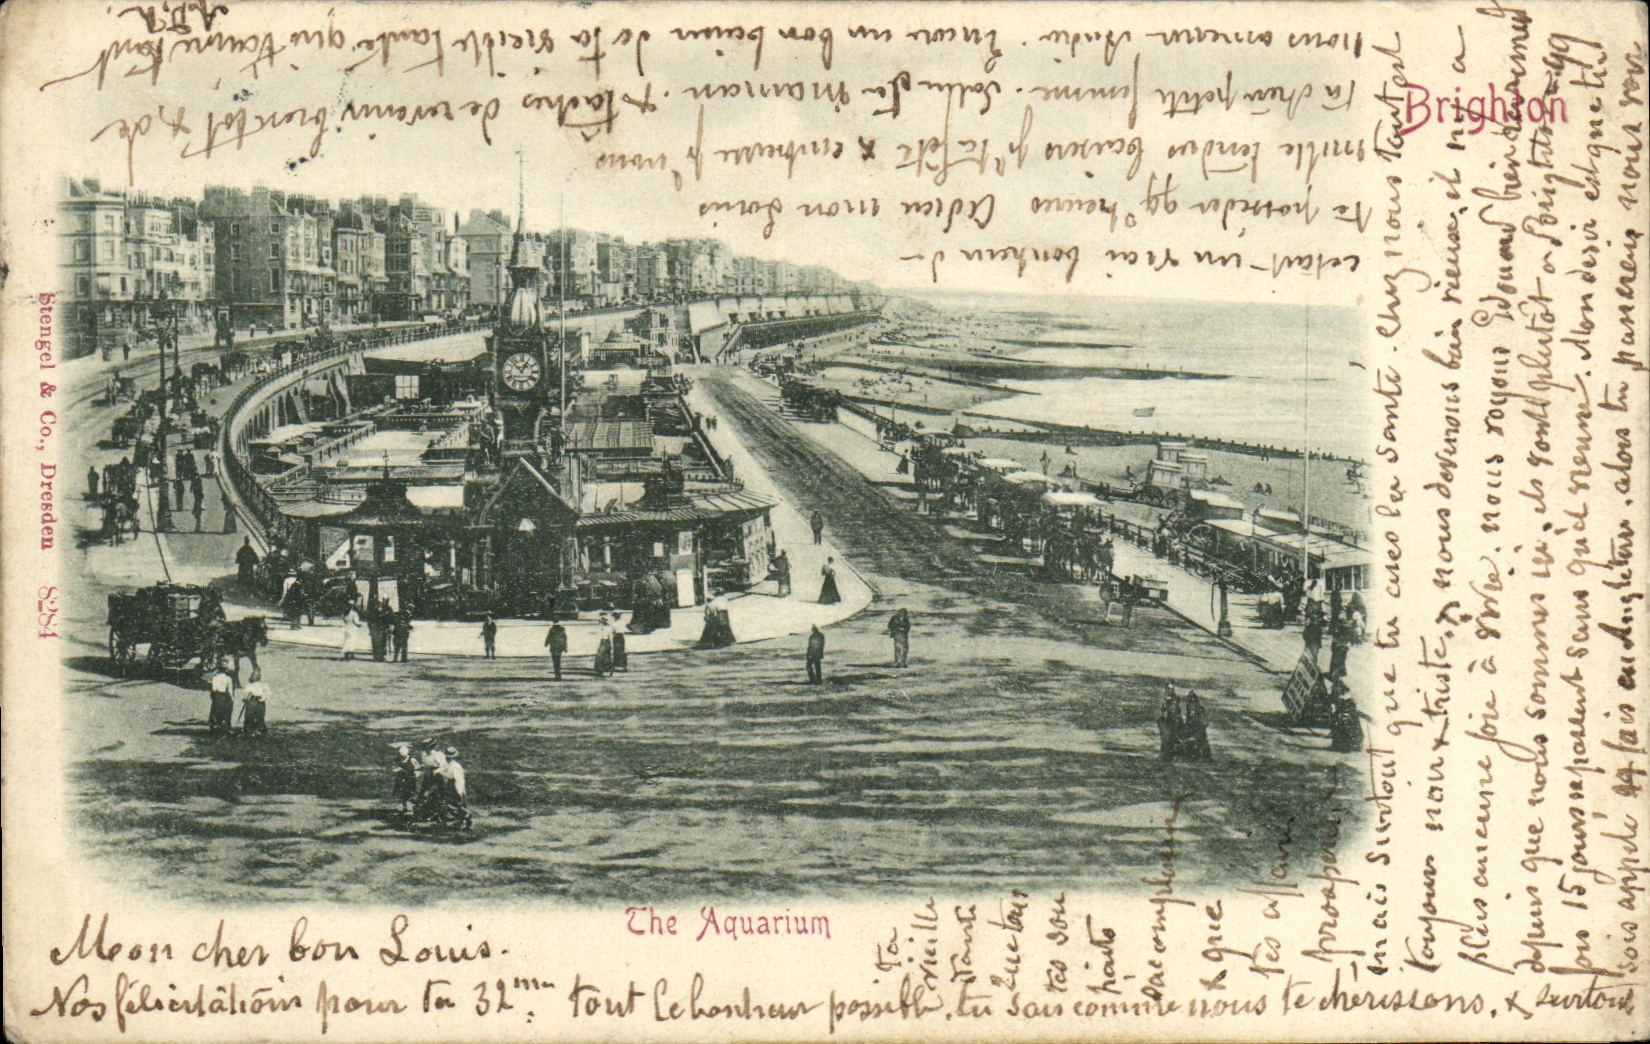 Brighton
Stengel & Co., Dresden 8284
The Aquarium
Mon cher bon Louis.
Nos félicitations pour ta 32me. tout le bonheur possible, tu sais comme nous te chérissons, & surtout
ta
vieille
tante
que tous
tes sou
haits
s'accomplissent
& que
tes affaires
prospèrent
mais surtout que tu aies la santé. Chez nous tout est
toujours noir & triste, nous devenons bien vieux, il n'y a
plus aucune joie à vivre. nous voyons Edouard bien rarement
depuis que nous sommes ici, ils vont plutôt à Brighton
15 jours se passent sans qu'il vienne. Mon désir est que tu
sois appelé en Angleterre, alors tu passerais nous voir
c'était un vrai bonheur de
te posséder qq heures Adieu mon Louis
mille tendres baisers pr ta fête & embrasse pr nous
ta chère petite femme. Salue sa maman. & tâches de revenir bientôt & de
nous amener. Encore un bon baiser de ta vieille tante qui t'aime tant